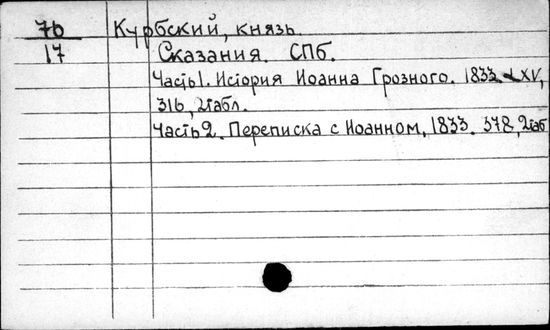 76 Курбский, князь.
17 Сказания. СПб.
Часть 1. История Иоанна Грозного. 1833. LXV,
316, 2 табл.
Часть 2. Переписка с Иоанном, 1833. 378, 2 таб